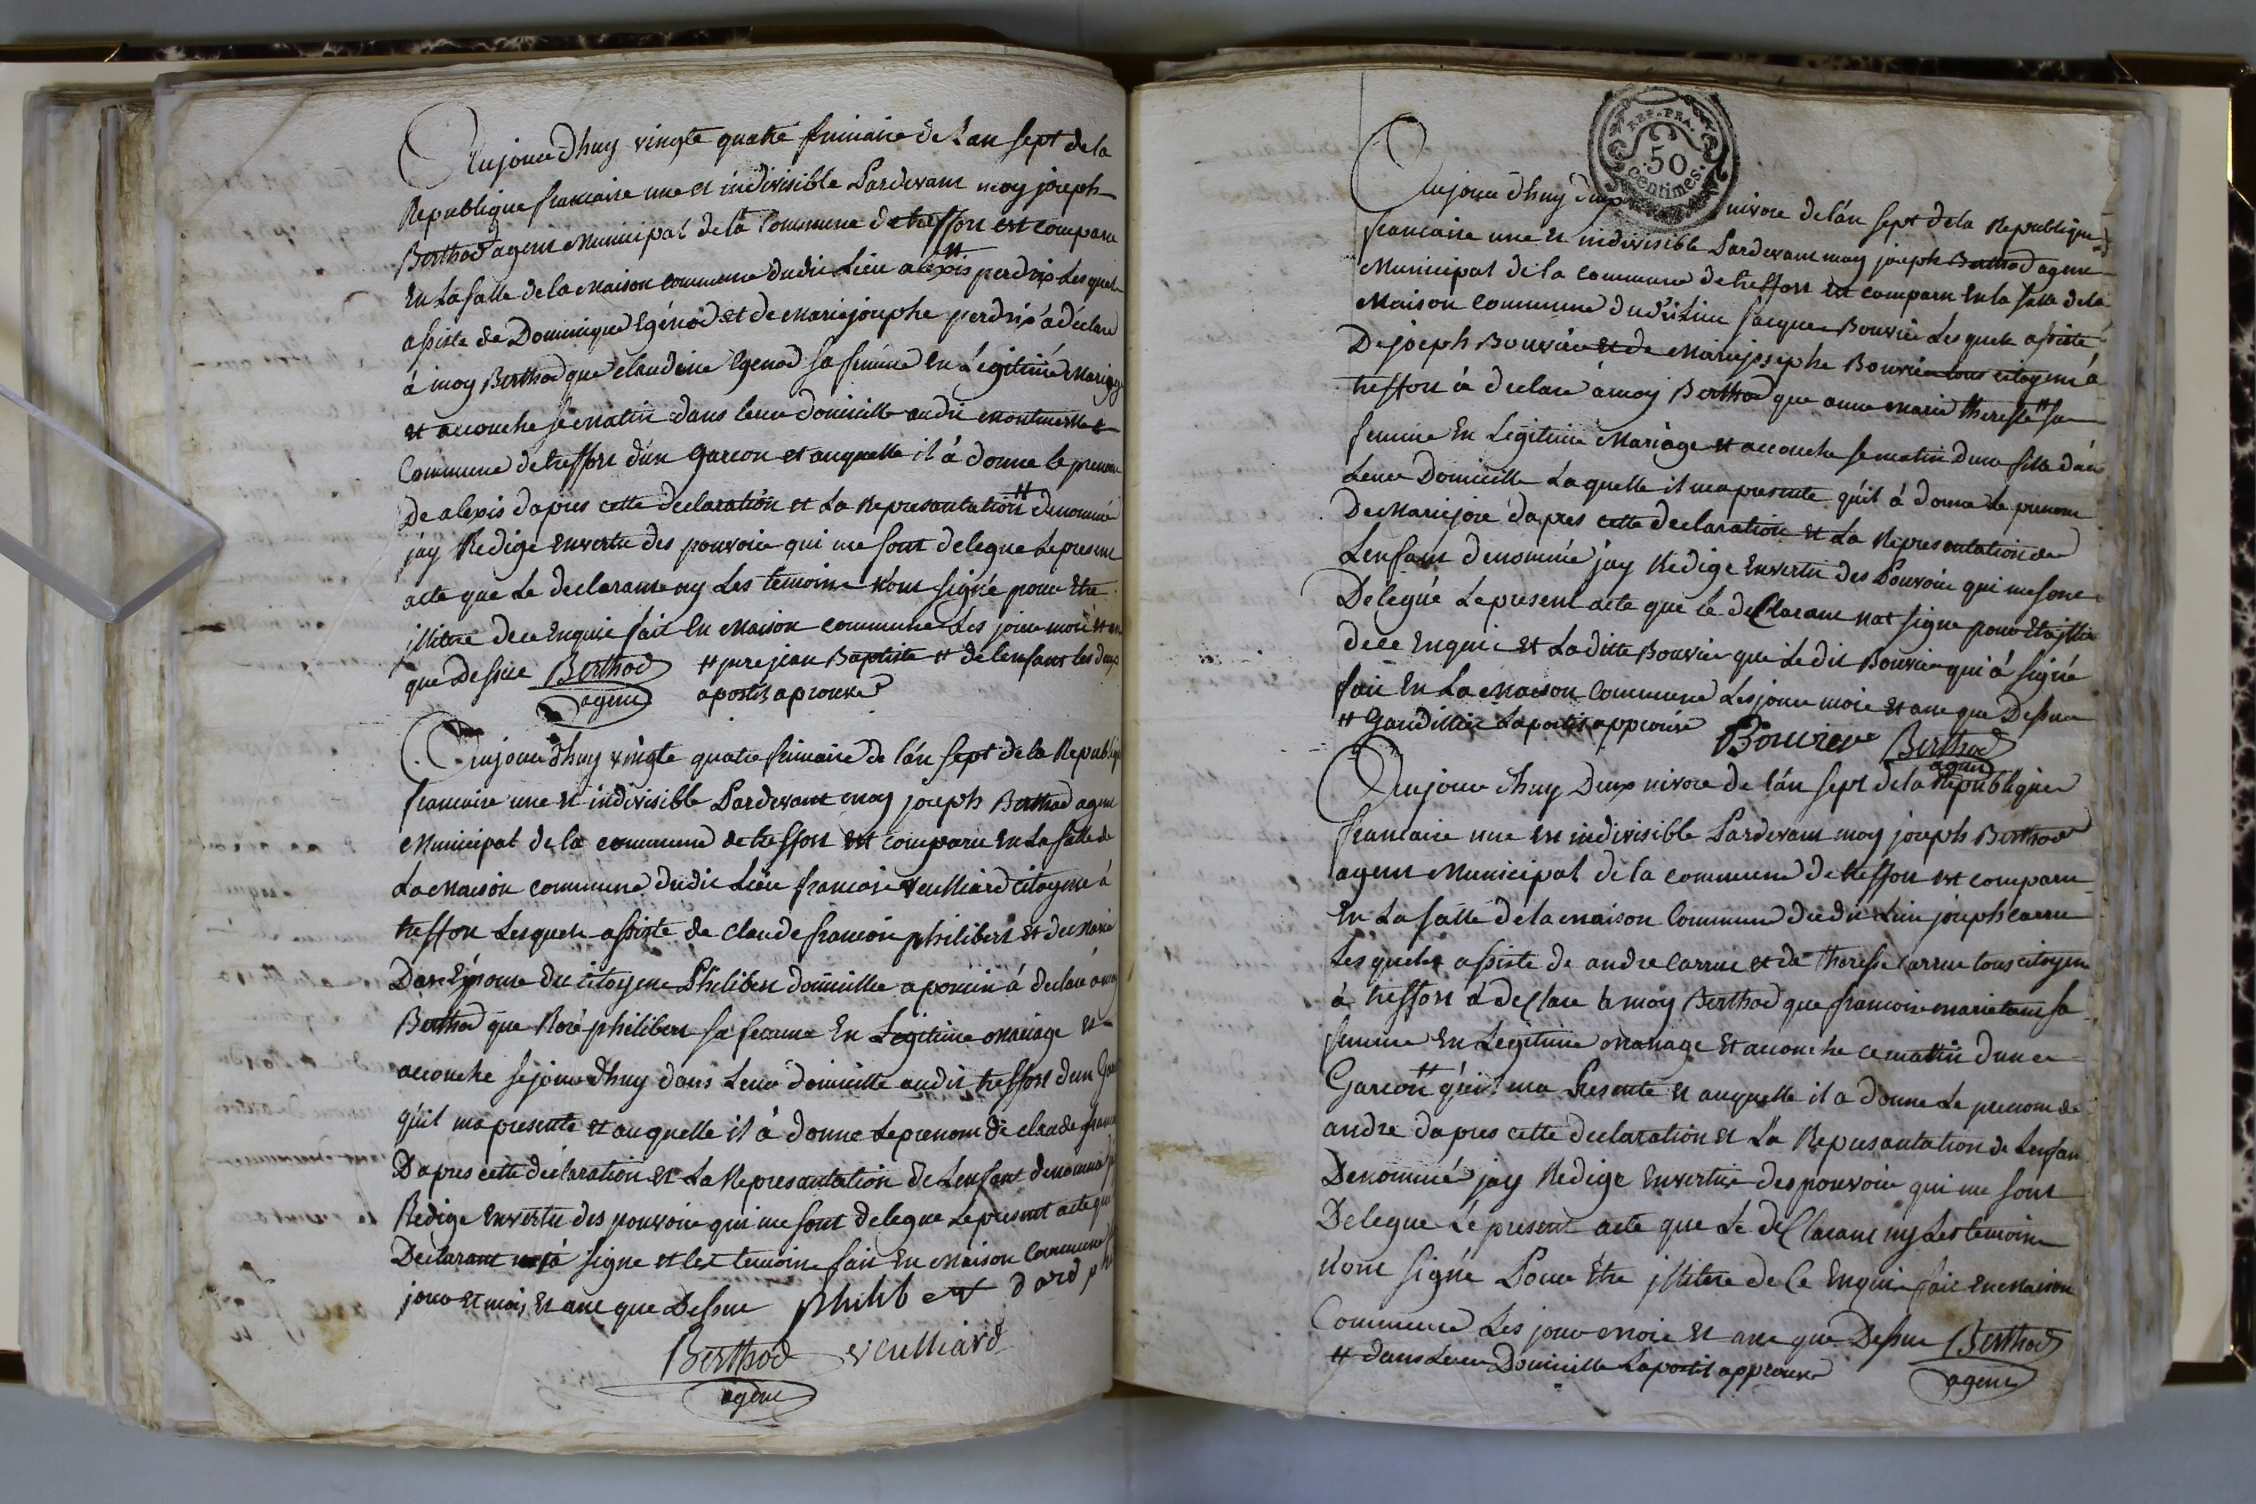 Aujourdhuy vingte quatre frimaire de Lan sept de la
Republique francaise une et indivisible Pardevant moy joseph
Berthod agent Municipal de la Commune de treffort est comparu
En La salle de la Maison commune dudit Lieu alexis # perdrix Lesquel
assiste de Dominique Egénod et de marie josephe perdrix à déclaré
à moy Berthod que claudine Egenod sa femme En Légitime Mariage
et accouche se matin dans leur domicille audit montmerle
Commune de treffort d'un garcon et auquelle il à donne le prenom
De alexis dapres cette declaration et La Representation # denommé
jay Redige Envertu des pouvoir qui me sont delegue Le present
acte que Le declarant ny Les temoins n'ont signé pour Etre
jllitere dece Enquis fait En Maison commune Les jour mois et an
que Dessus Berthod # pere jean Baptiste # de lenfant les deux
agent apostis aprouve
Aujourdhuy vingte quatre frimaire de l'án sept de la Republique
francaise une et indivisible Pardevant moy joseph Berthod agent
Municipal de la commune de treffort est comparu En La salle de
La Maison commune dudit Lieu francois veulliard citoyen à
treffort Lesquel assiste de Claude francois philibert et de
Dard Epouse du citoyen Philibert domicille à declare à moy
Berthod que Rose philibert sa femme En Légitime Mariage et
accouche sejourdhuy dans Leur domicille audit treffort dun
qu'il ma presente et auquelle il à donne Le prenom de claude
Dapres cette declaration et La Representation de Lenfant denommé
Redige Envertu des pouvoir qui me sont delegue Le present acte que
Declarant à signe et les temoins fait En Maison Commune
jour et mois et ane que Dessus philibert dard
Berthod veulliard
agent
REP. FRA.
50
centimes.
Aujourdhuy nivose de l'án sept de la Republique
francaise une et indivisible Pardevant moy joseph Berthod agent
Municipal de la commune de treffort est comparu En la salle de la
Maison commune dudit Lieu jacque Bouvier Lesquel assiste
De joseph Bouvier et de Marie josephe Bouvier tous citoyen à
treffort à declare à moy Berthod que anne Marie theresse # sa
femme En Légitime Mariage et accouche se matin dune fille dans
Leur Domicille Laquelle il ma presente quil à donne Le prenom
De Marie jose dapres cette declaration et La Representation de
Lenfant denommé jay Redige Envertu des Pouvoir qui me sont
Delegué Le present acte que le declarant not signe pour Etre jllitere
dece Enquis et La ditte Bouvier que Le dit Bouvier qui à signé
fait En La Maison Commune Les jour mois et ane que Dessus
# Gaudillier Lapostis approuve Bouvier Berthod
agent
Aujourdhuy Deux nivose de lán sept de la Republique
francaise une et indivisible Pardevant moy joseph Berthod
agent Municipal de la commune de treffort est comparu
En La salle de la maison Commune dudit Lieu joseph carru
Lesquel assiste de andre Carru et de Theresse Carru tous citoyen
à treffort à declare à moy Berthod que francoise marie sa
femme En Légitime Mariage et accouche ce mattin dun
Garcon # qu'il ma Presente et auquelle il a donne Le prenom de
andre dapres cette declaration et La Representation de Lenfan
Denommé jay Redige Envertu des pouvoir qui me sont
Delegue Le present acte que Le declarant ny Les temoins
N'ont signé Pour Etre jllitere de Ce Enquis fait En Maison
Commune Les jour mois et ane que Dessus Berthod
# dans Leur Domicille Lapostil approuve agent